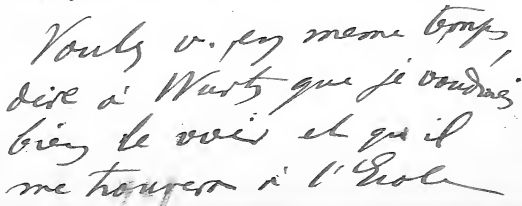 Voulez v. en meme temps,
dire à Wurtz que je voudrais
bien le voir et qu'il
me trouvera à l'Ecole